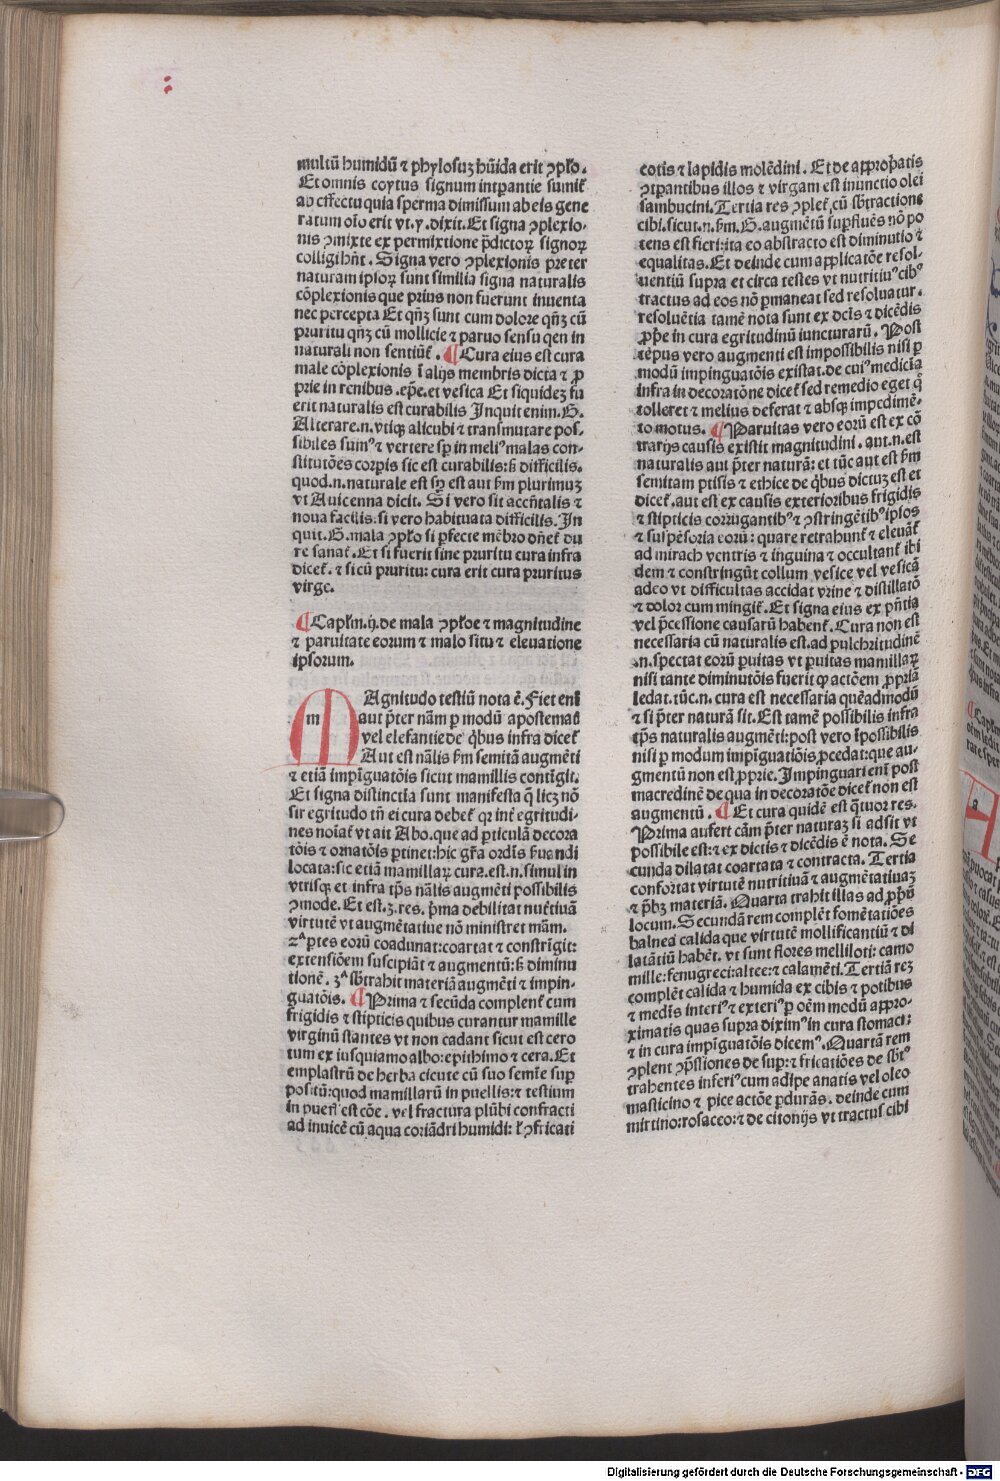 multū humidū ⁊ phylosuꝫ hūida erit ꝯplo.
Et omnis coytus signum intꝑantie sumit̃
ab effectu quia sperma dimissum ab eis gene
ratum oīo erit vt.y.dixit.Et signa ꝯplexio-
nis ꝯmixte ex permixtione p̄dictoꝝ signoꝝ
colligihn̄t. Signa vero ꝯplexionis preter
naturam ipsoꝝ sunt similia signa naturalis
cōplexionis que prius non fuerunt inuenta
nec percepta Et qn̄ꝫ sunt cum dolore qn̄ꝫ cū
pruritu qn̄ꝫ cū mollicie ⁊ paruo sensu qen in
naturali non sentiūt̃. ¶Cura eius est cura
male cōplexionis ī alijs membris dicta ⁊ ꝓ
prie in renibus.ep̄e.et vesica Et siquideꝫ fu
erit naturalis est curabilis Inquit enim.G.
Alterare.n.vtiqꝫ alicubi ⁊ transmutare pos-
sibiles sumꝰ ⁊ vertere sp̄ in meliꝰ malas con-
stitutōes corpis sic est curabilis:s̄ difficilis.
quod.n.naturale est sꝫ est aut s̄m plurimuꝫ
vt Auicenna dicit. Si vero sit accn̄talis ⁊
noua facilis.si vero habituata difficilis.In
quit.G.mala ꝯplo si ꝑfecte mēbro dn̄et̃ du
re sanat̃.Et si fuerit sine pruritu cura infra
dicet̃.⁊ si cū pruritu: cura erit cura pruritus
virge.
¶Capl̄m.ij.de mala ꝯploe ⁊ magnitudine
⁊ paruitate eorum ⁊ malo situ ⁊ eleuatione
ipsorum.
m
MAgnitudo testiū nota ē.Fiet enī
aut p̄ter nām ꝑ modū apostematꝭ
vel elefantie de q̄bus infra dicet̃
Aut est nālis s̄m semitā augmēti
⁊ etiā impīguatōis sicut mamillis contīgit.
Et signa distinctīa sunt manifesta q̄ licꝫ nō
sit egritudo tn̄ ei cura debet̃ qꝛ int̃ egritudi-
nes noīat̃ vt ait Albo.que ad ꝑticulā decora
tōis ⁊ ornatōis ꝑtinet:hic gr̄a ordīs s̄uandi
locata:sic etiā mamillaꝝ cura.est.n.simul in
vtrisqꝫ et infra tp̄s nālis augmēti possibilis
ꝯmode.Et est.ꝫ.res. p̄ma debilitat nut̃tiuā
virtutē vt augmētatiue nō ministret mām.
2ᵃ ptes eorū coadunat:coartat ⁊ constrīgit:
extensiōem suscipiāt ⁊ augmentū:s̄ diminu
tionē. 3ᵃ s̄btrahit materiā augmēti ⁊ impin-
guatōis. ¶Prima ⁊ secūda complent̃ cum
frigidis ⁊ stipticis quibus curantur mamille
virginū stantes vt non cadant sicut est cero
tum ex iusquiamo albo:epithimo ⁊ cera.Et
emplastrū de herba cicute cū suo semīe suꝑ
positū:quod mamillarū in puellis:⁊ testium
in puerꝭ est cōe. vel fractura plūbi confracti
ad inuicē cū aqua coriādri humidi: ł ꝯfricati
cotis ⁊ lapidis molēdini. Et de approp̄atis
ꝯtpantibus illos ⁊ virgam est inunctio olei
sambucini.Tertia res ꝯplet̃ cū s̄btractione
cibi.sicut.n.s̄m.G.augmētū suꝑfluēs nō po
tens est fieri:ita eo abstracto est diminutio ⁊
equalitas.Et deinde cum applicatōe resol-
uentiū supra et circa testes vt nutritiuꝰ cibꝰ
tractus ad eos nō ꝑmaneat sed resoluatur.
resoluētia tamē nota sunt ex dcīs ⁊ dicēdis
ꝓp̄e in cura egritudinū iuncturarū. Post
tēpus vero augmenti est impossibilis nisi ꝑ
modū impinguatōis existat.de cuiꝰ medicīa
infra in decoratōne dicet̃ sed remedio eget q̄
tolleret ⁊ melius deferat ⁊ absqꝫ impedimē-
to motus. ¶Paruitas vero eorū est ex cō
trarijs causis existit magnitudini. aut.n.est
naturalis aut p̄ter naturā: et tūc aut est s̄m
semitam ptisis ⁊ ethice de q̄bus dictuꝫ est et
dicet̃.aut est ex causis exterioribus frigidis
⁊ stipticis corrugantibꝰ ⁊ ꝯstringētibꝰ ipsos
⁊ suspēsoria eorū: quare retrahunt̃ ⁊ eleuāt̃
ad mirach ventris ⁊ inguina ⁊ occultant̃ ibi
dem ⁊ constringūt collum vesice vel vesicā
adeo vt difficultas accidat vrine ⁊ distillatō
⁊ dolor cum mingit̃.Et signa eius ex pn̄tia
vel p̄cessione causarū habent̃. Cura non est
necessaria cū naturalis est.ad pulchritudinē
.n.spectat eorū puitas vt ꝑuitas mamillaꝝ
nisi tante diminutōis fuerit qꝫ actōem ꝓpriā
ledat.tūc.n. cura est necessaria quēadmodū
⁊ si p̄ter naturā sit.Est tamē possibilis infra
tp̄s naturalis augmēti:post vero īpossibilis
nisi ꝑ modum impīguatiōis ꝓcedat:que au-
gmentū non est ꝓprie.Impinguari enī post
macredinē de qua in decoratōe dicet̃ non est
augmentū. ¶Et cura quidē est q̄tuor res.
Prima aufert cām p̄ter naturaꝫ si adsit vt
possibile est:⁊ ex dictis ⁊ dicēdis ē nota. Se
cunda dilatat coartata ⁊ contracta. Tertia
confortat virtutē nutritiuā ⁊ augmētatiuaꝫ
⁊ p̄bꝫ materiā. Quarta trahit illas ad ꝓp̄ū
locum.Secundā rem complēt fomētatiōes
balnea calida que virtutē mollificantiū ⁊ di
latātiū habēt. vt sunt flores melliloti: camo
mille:fenugreci:altee:⁊ calamēti.Tertiā reꝫ
complēt calida ⁊ humida ex cibis ⁊ potibus
⁊ medīs interiꝰ ⁊ exteriꝰ ꝑ oēm modū appro-
ximatis quas supra diximꝰ in cura stomaci:
⁊ in cura impīguatōis dicemꝰ.Quartā rem
ꝯplent ꝯp̄ssiones de supꝛ:⁊ fricatiōes de s̄btꝰ
trahentes inferiꝰ cum adipe anatis vel oleo
masticino ⁊ pice actōe ꝑdurās. deinde cum
mirtino:rosacco:⁊ de citonijs vt tractus cibi
Digitalisierung gefördert durch die Deutsche Forschungsgemeinschaft - DFG